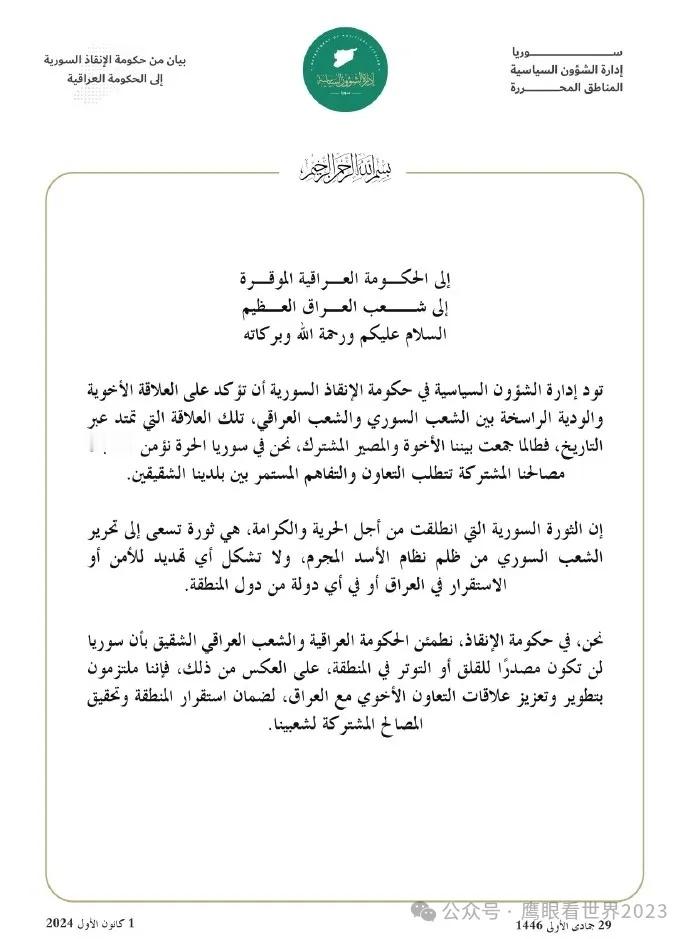 ســـــــــوريا
إدارة الشؤون السياسية
المناطق المحـــــررة
DEPARTMENT OF POLITICAL AFFAIRS
إدارة الشؤون السياسية
سوريا
بيان من حكومة الإنقاذ السورية
إلى الحكومة العراقية
بسم الله الرحمن الرحيم
إلى الحكـــومة العـــراقية الموقـــرة
إلى شـــــعب العـــراق العـــظيم
السلام عليكم ورحمة الله وبركاته
تود إدارة الشؤون السياسية في حكومة الإنقاذ السورية أن تؤكد على العلاقة الأخوية
والودية الراسخة بين الشعب السوري والشعب العراقي، تلك العلاقة التي تمتد عبر
التاريخ، فطالما جمعت بيننا الأخوة والمصير المشترك، نحن في سوريا الحرة نؤمن
مصالحنا المشتركة تتطلب التعاون والتفاهم المستمر بين بلدينا الشقيقين.
إن الثورة السورية التي انطلقت من أجل الحرية والكرامة، هي ثورة تسعى إلى تحرير
الشعب السوري من ظلم نظام الأسد المجرم، ولا تشكل أي تهديد للأمن أو
الاستقرار في العراق أو في أي دولة من دول المنطقة.
نحن، في حكومة الإنقاذ، نطمئن الحكومة العراقية والشعب العراقي الشقيق بأن سوريا
لن تكون مصدرًا للقلق أو التوتر في المنطقة، على العكس من ذلك، فإننا ملتزمون
بتطوير وتعزيز علاقات التعاون الأخوي مع العراق، لضمان استقرار المنطقة وتحقيق
المصالح المشتركة لشعبينا.
29 جمادى الأولى 1446
1 كانون الأول 2024
公众号 · 鹰眼看世界2023